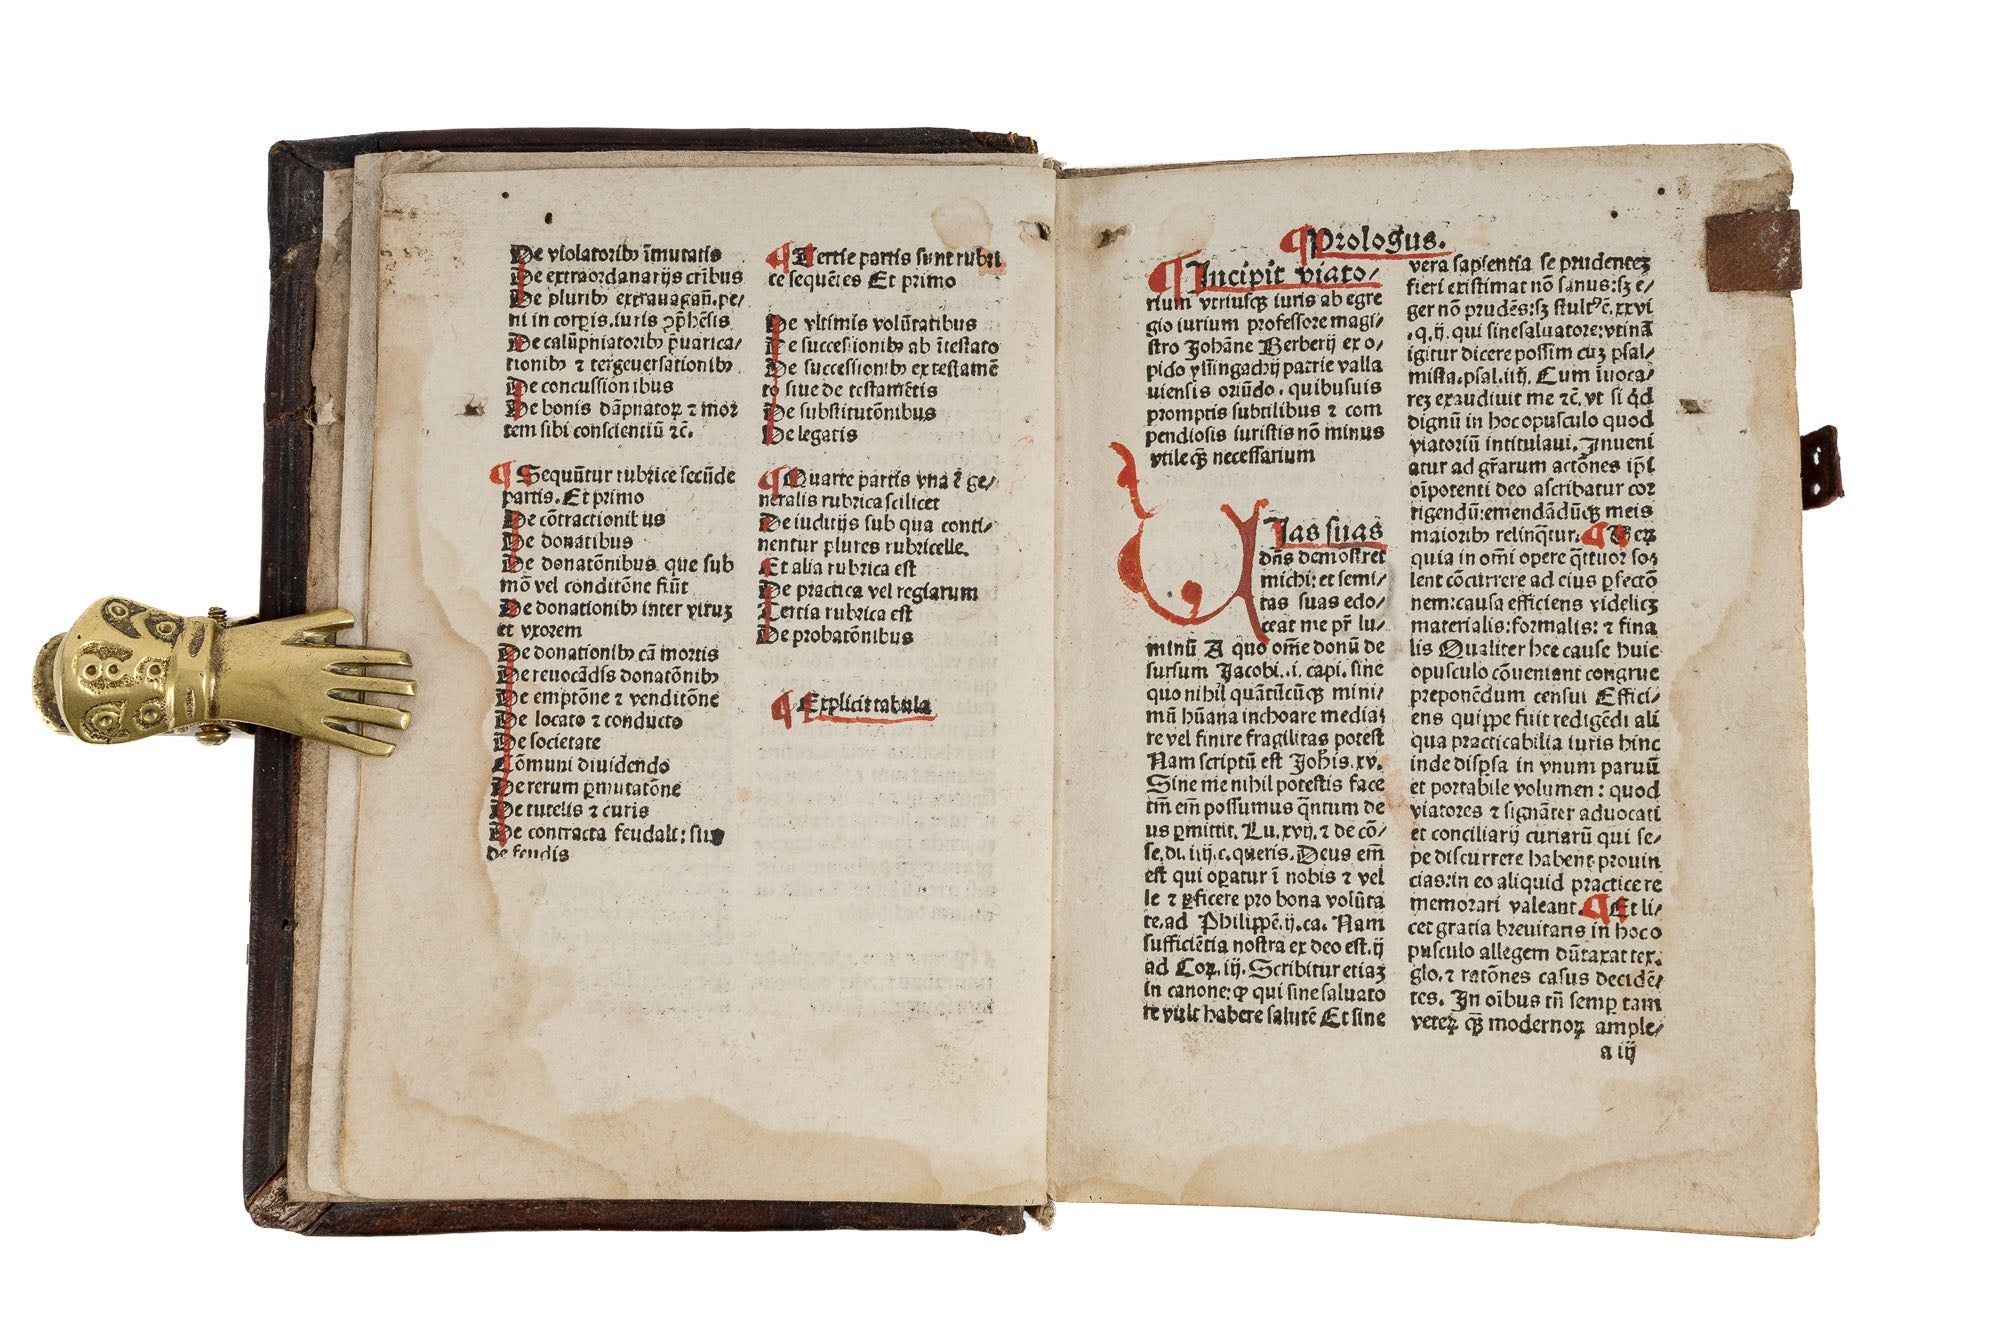 De violatoribꝫ īmutatis
De extraordanarijs crībus
De pluribꝫ extrauagan̄.pe/
ni in corp̄is.iuris ꝯp̄hēsis
De calūpniatoribꝫ p̄uarica/
tionibꝫ ⁊ tergeuersationibꝫ
De concussionibus
De bonis dāpnatoꝝ ⁊ mor
tem sibi conscientiū ⁊c̄.
¶ Sequūtur rubrice secūde
partis. Et primo
De cōtractionibus
De donatibus
De donatōnibus que sub
mō vel conditōne fiūt
De donationibꝫ inter viruꝫ
et vxorem
De donationibꝫ cā mortis
De reuocādis donatōnibꝫ
De emptōne ⁊ venditōne
De locato ⁊ conducto
De societate
Cōmuni diuidendo
De rerum ꝑmutatōne
De tutelis ⁊ curis
De contracta feudali: siue
de feudis
¶ Tertie partis sunt rubri
ce sequētes Et primo
De vltimis volūtatibus
De successionibꝫ ab ītestato
De successionibꝫ ex testamē
to siue de testamētis
De substitutōnibus
De legatis
¶ Quarte partis vna ē ge/
neralis rubrica scilicet
De iuditijs sub qua conti/
nentur plures rubricelle.
Et alia rubrica est
De practica vel regiarum
Tertia rubrica est
De probatōnibus
¶ Explicit tabula
¶ Prologus.
¶ Incipit viato/
rium vtriusqꝫ iuris ab egre
gio iurium professore magi/
stro Johāne Berberij ex o/
pido yssingachij patrie valla
uiensis oriūdo. quibusuis
promptis subtilibus ⁊ com
pendiosis iuristis nō minus
vtile qꝫ necessarium
Vias suas
dn̄s demostret
michi: et semi/
tas suas edo/
ceat me pr̄ lu/
minū A quo om̄e donū de
sursum Jacobi.i. capi. sine
quo nihil quātūlcūqꝫ mini/
mū hūana inchoare media/
re vel finire fragilitas potest
Nam scriptū est Joh̄is.xv.
Sine me nihil potestis face
tm̄ em̄ possumus q̄ntum de
us ꝑmittit. Lu.xvij. ⁊ de cō/
se.di.iiij.c.queris. Deus em̄
est qui oꝑatur ī nobis ⁊ vel
le ⁊ ꝑficere pro bona volūta
te.ad Philippē.ij.ca. Nam
sufficiētia nostra ex deo est.ij
ad Coꝝ.iij. Scribitur etiaꝫ
in canone: ꝙ qui sine saluato
re vult habere salutē Et sine
vera sapientia se prudenteꝫ
fieri existimat nō sanus: sꝫ e/
ger nō prudēs: sꝫ stultꝰ ē.xxvi
.q.ij. qui sine saluatore: vtinā
igitur dicere possim cuꝫ psal/
mista.psal.iiij. Cum īuoca/
reꝫ exaudiuit me ⁊c̄. vt si q̇d
dignū in hoc opusculo quod
viatoriū intitulaui. Inueni
atur ad gr̄arum actōnes ip̄i
oīpotenti deo ascribatur cor
rigendū: emendādūqꝫ meis
maioribꝫ relinq̄tur. ¶ Veꝝ
quia in om̄i opere q̄tuor so/
lent cōcurrere ad eius ꝑfectō
nem: causa efficiens videlicꝫ
materialis: formalis: ⁊ fina
lis Qualiter hee cause huic
opusculo cōueniant congrue
preponēdum censui Effici/
ens quippe fuit redigēdi ali
qua practicabilia iuris hinc
inde disꝑsa in vnum paruū
et portabile volumen: quod
viatores ⁊ signāter aduocati
et conciliarij curiarū qui se/
pe discurrere habent prouin
cias: in eo aliquid practice re
memorari valeant. ¶ Et li/
cet gratia breuitatis in hoc o
pusculo allegem dūtaxat tex.
glo. ⁊ ratōnes casus decidē/
tes. In oībus tn̄ semꝑ tam
veteꝝ qꝫ modernoꝝ ample/
a iij